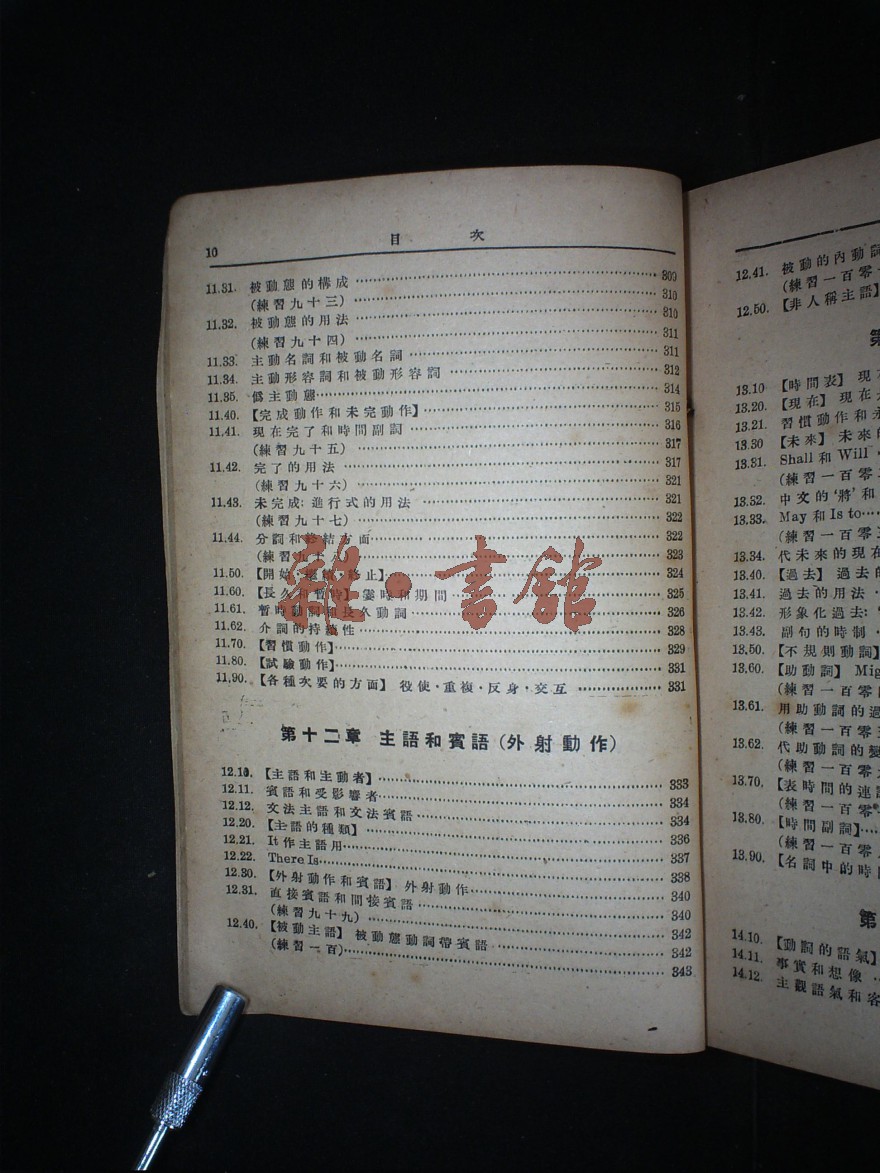 10 目 次
11.31. 被動態的構成 309
(練習九十三) 310
11.32. 被動態的用法 310
(練習九十四) 311
11.33. 主動名詞和被動名詞 311
11.34. 主動形容詞和被動形容詞 312
11.35. 僞主動態 314
11.40. 【完成動作和未完動作】 315
11.41. 現在完了和時間副詞 316
(練習九十五) 317
11.42. 完了的用法 317
(練習九十六) 321
11.43. 未完成:進行式的用法 321
(練習九十七) 322
11.44. 分詞和終結方面 322
(練習九十八) 323
11.50. 【開始·繼續·終止】 324
11.60. 【長久和暫時】 霎時和期間 325
11.61. 暫時動詞和長久動詞 326
11.62. 介詞的持續性 328
11.70. 【習慣動作】 329
11.80. 【試驗動作】 331
11.90. 【各種次要的方面】 役使·重複·反身·交互 331
第十二章 主語和賓語(外射動作)
12.10. 【主語和主動者】 333
12.11. 賓語和受影響者 334
12.12. 文法主語和文法賓語 334
12.20. 【主語的種類】 336
12.21. It作主語用 337
12.22. There Is 338
12.30. 【外射動作和賓語】 外射動作 340
12.31. 直接賓語和間接賓語 340
(練習九十九) 342
12.40. 【被動主語】 被動態動詞帶賓語 342
(練習一百) 343
雜·書館
12.41. 被動的內動詞
(練習一百零
12.50. 【非人稱主語】
第
13.10 【時間表】 現在
13.20. 【現在】 現在
13.21. 習慣動作和
13.30 【未來】 未來的
13.31. Shall 和 Will
(練習一百零
13.32. 中文的‘將’和
13.33. May 和 Is to
(練習一百零
13.34. 代未來的現在
13.40. 【過去】 過去的
13.41. 過去的用法
13.42. 形象化過去:
13.43. 副句的時制
13.50. 【不規則動詞】
13.60. 【助動詞】 Mig
(練習一百零
13.61. 用助動詞的過
(練習一百零
13.62. 代助動詞的
(練習一百零
13.70. 【表時間的連詞
(練習一百零
13.80. 【時間副詞】
(練習一百零
13.90. 【名詞中的時
第
14.10. 【動詞的語氣】
14.11. 事實和想像
14.12. 主觀語氣和客